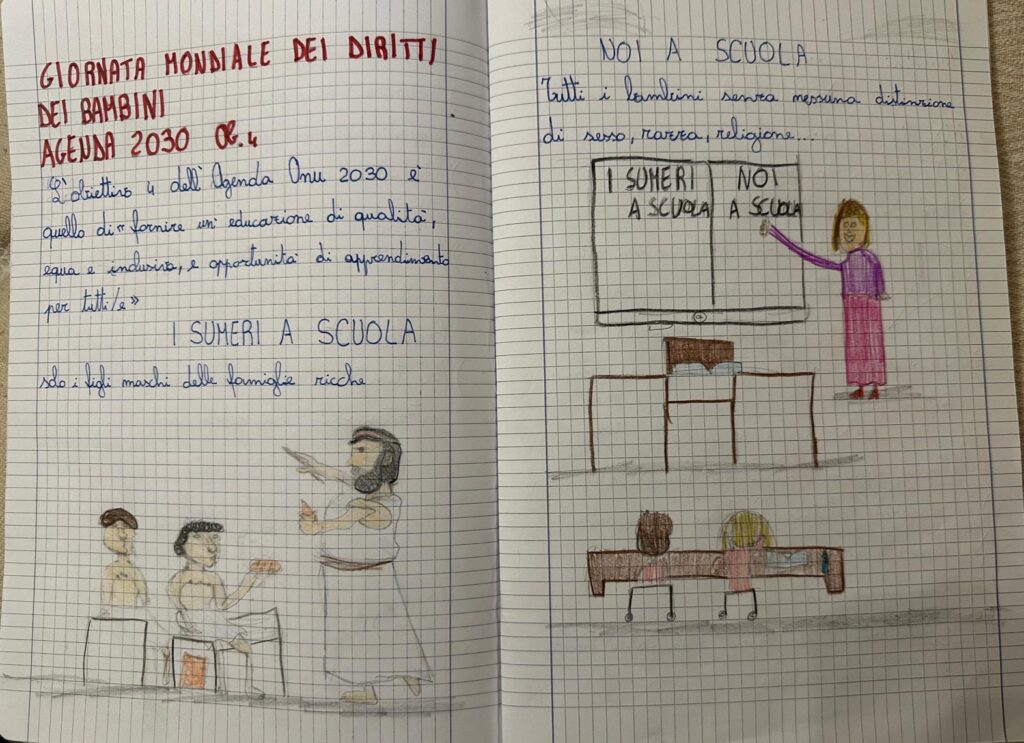 GIORNATA MONDIALE DEI DIRITTI
DEI BAMBINI
AGENDA 2030 OB.4
L'obiettivo 4 dell'Agenda Onu 2030 è
quello di « fornire un'educazione di qualità,
equa e inclusiva, e opportunità di apprendimento
per tutti/e »
I SUMERI A SCUOLA
solo i figli maschi delle famiglie ricche
NOI A SCUOLA
Tutti i bambini senza nessuna distinzione
di sesso, razza, religione...
I SUMERI
A SCUOLA
NOI
A SCUOLA